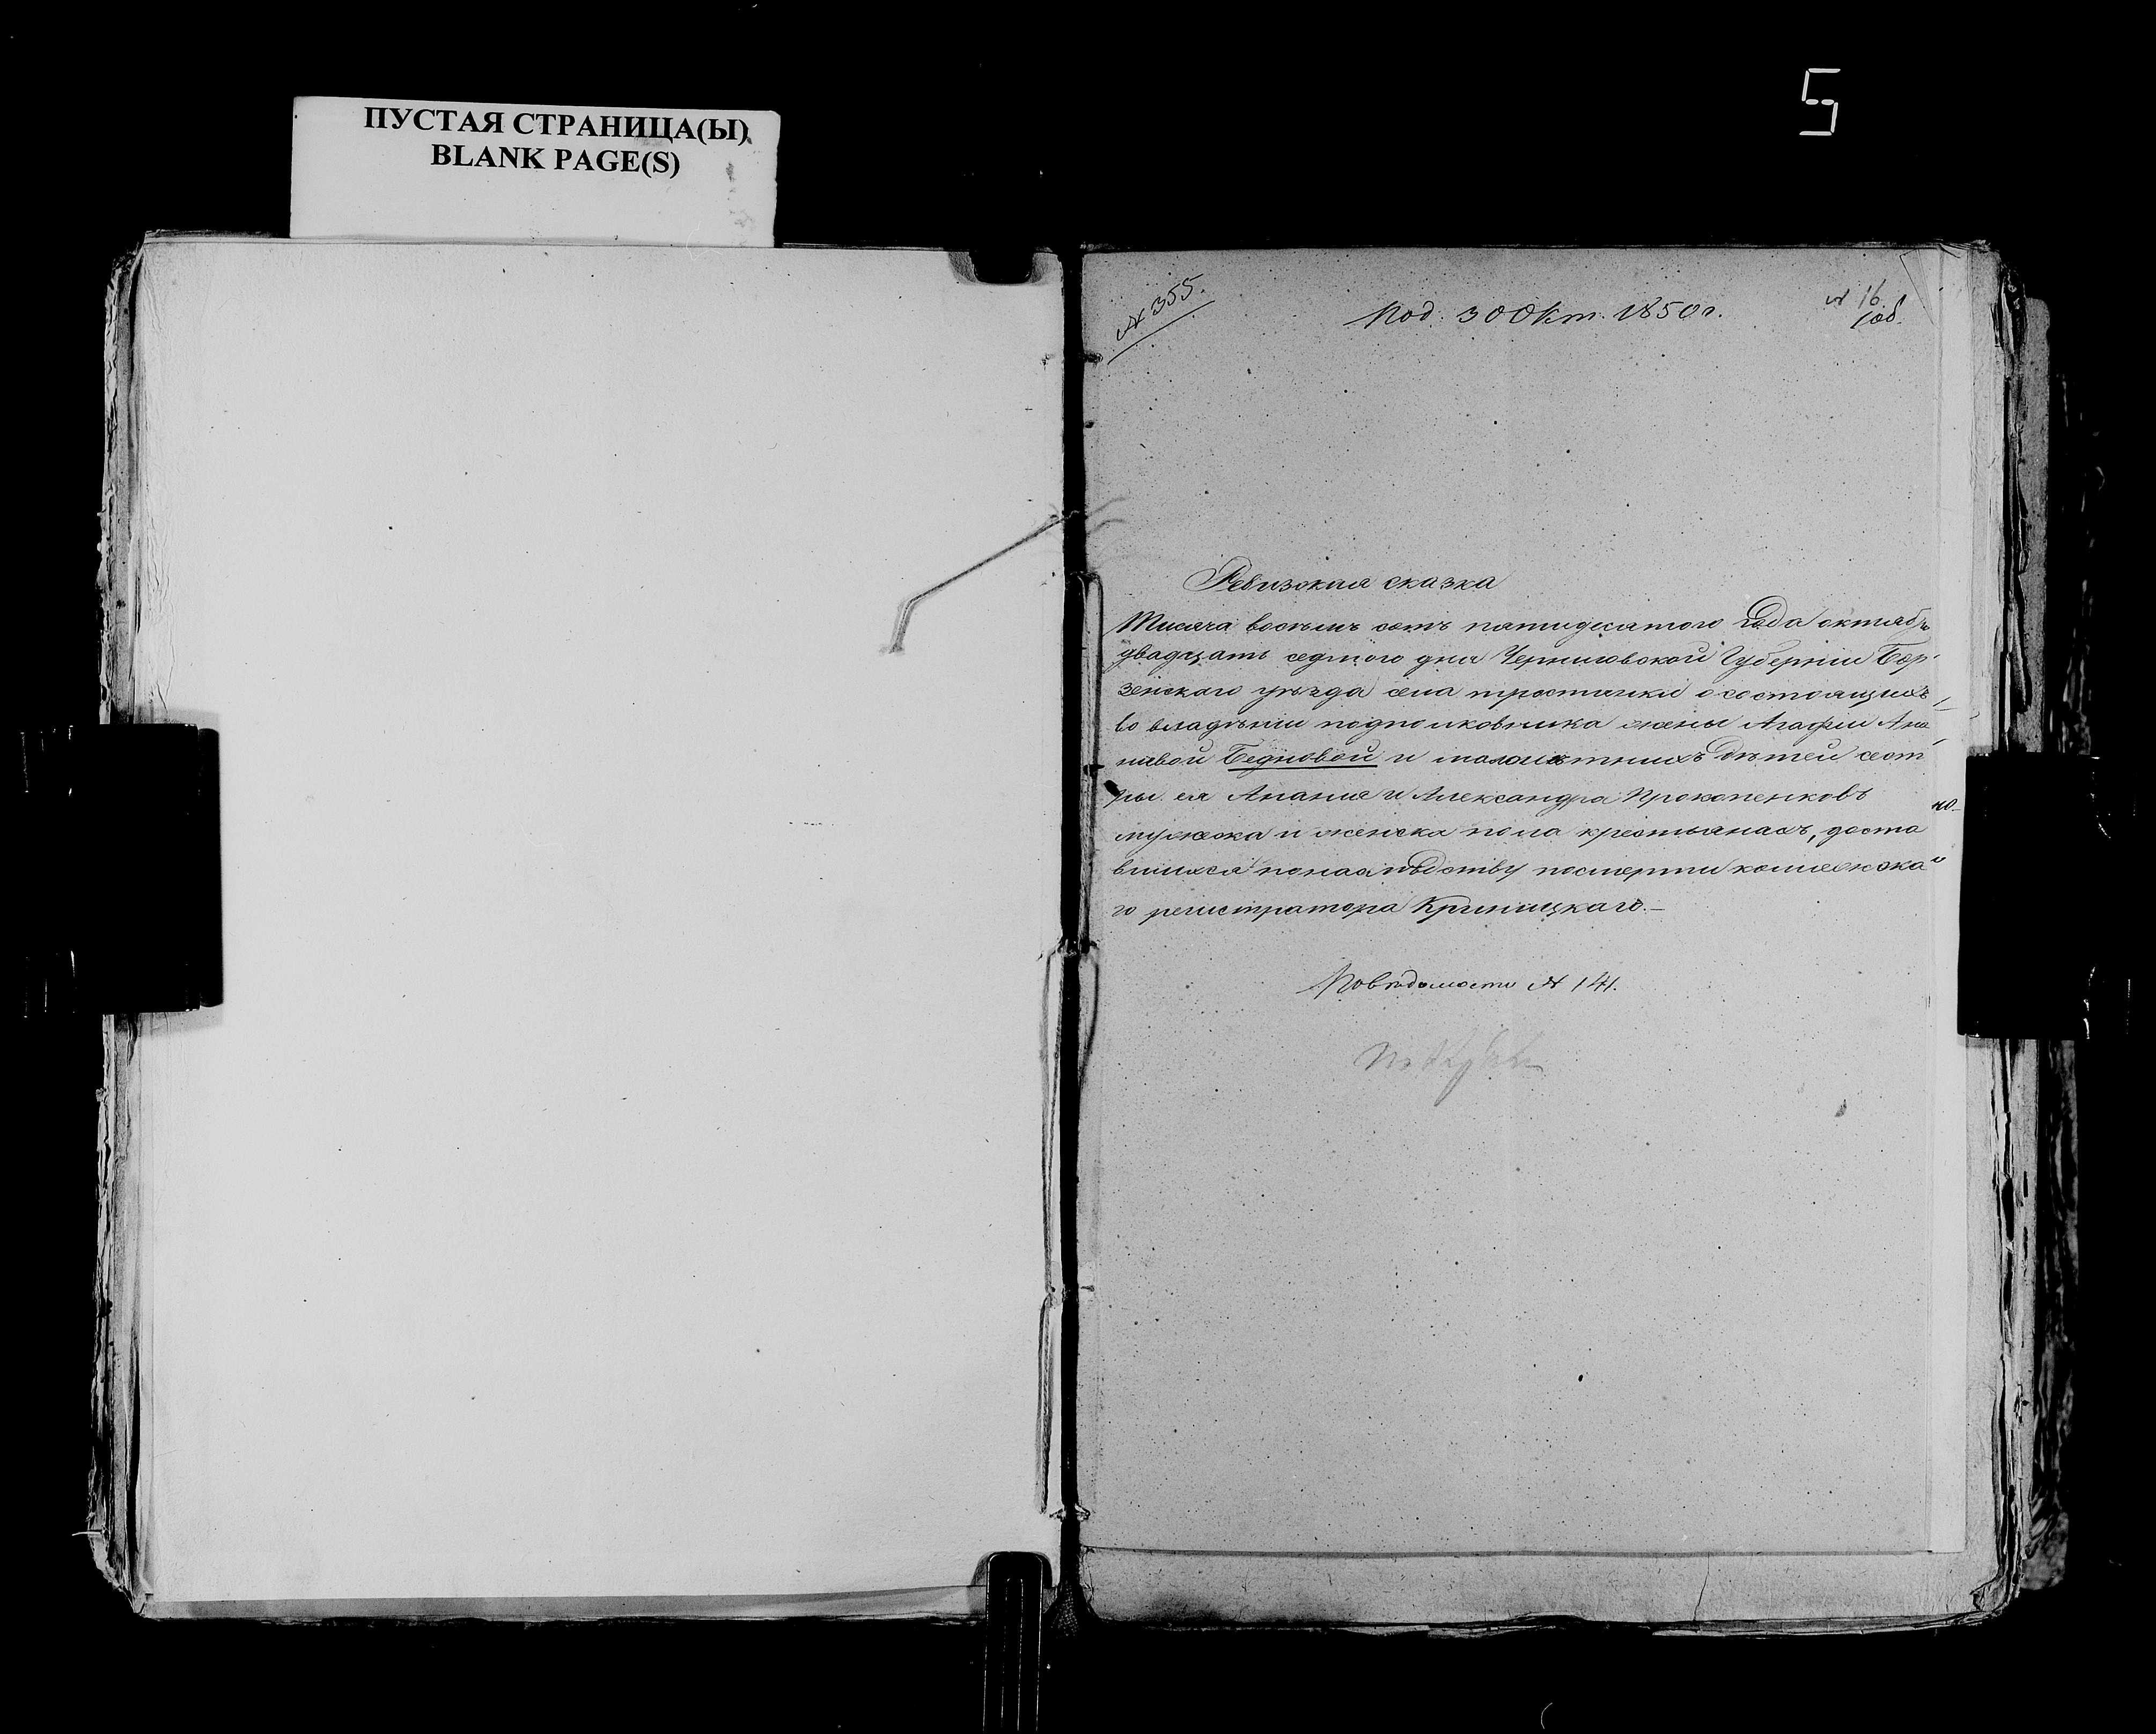 5
ПУСТАЯ СТРАНИЦА(Ы)
BLANK PAGE(S)
№ 355.
Под. 30 Окт. 1850 г.
№ 16.
Ревизская сказка
Тисяча восемь сотъ пятидесятого года октябр
двадцать седмого дня Черниговской Губерніи Бор-
зенского уѣзда села тростянки о состоящихъ
во владѣніи подполковника жены Агафіи Ана-
нивой Бедновой и малолѣтнихъ дѣтей сест
ры ея Анания и Александра Прокопенковъ
мужеска и женска пола крестьянахъ, доста
вшихся по наслѣдству по смерти коллежска
го регистратора Криницкаго.—
По вѣдомости № 141.